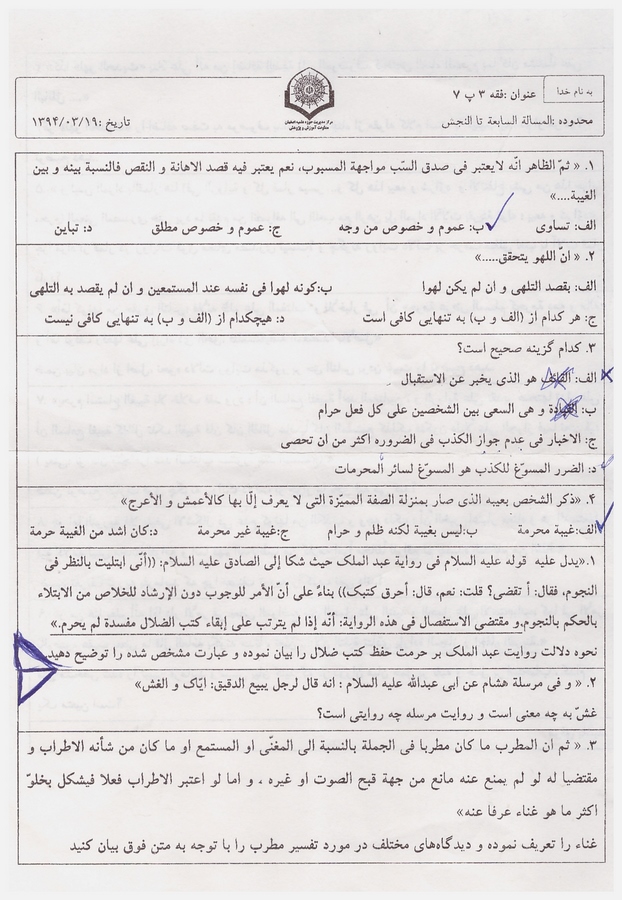 به نام خدا
عنوان :فقه ۳ پ ۷
محدوده: المسالة السابعة تا النجش
مرکز مدیریت حوزه علمیه اصفهان
معاونت آموزش و پژوهش
تاریخ :۱۳۹۴/۰۳/۱۹
۱. « ثمّ الظاهر انّه لایعتبر فی صدق السّب مواجهة المسبوب، نعم یعتبر فیه قصد الاهانة و النقص فالنسبة بینه و بین
الغیبة....»
الف: تساوی ب: عموم و خصوص من وجه ج: عموم و خصوص مطلق د: تباین
۲. « انّ اللهو یتحقق.....»
الف: بقصد التلهی و ان لم یکن لهوا ب:کونه لهوا فی نفسه عند المستمعین و ان لم یقصد به التلهی
ج: هر کدام از (الف و ب) به تنهایی کافی است د: هیچکدام از (الف و ب) به تنهایی کافی نیست
۳. کدام گزینه صحیح است؟
الف: القائف هو الذی یخبر عن الاستقبال
ب: القیادة و هی السعی بین الشخصین علی کل فعل حرام
ج: الاخبار فی عدم جواز الکذب فی الضروره اکثر من ان تحصی
د: الضرر المسوغ للکذب هو المسوّغ لسائر المحرمات
۴. «ذکر الشخص بعیبه الذی صار بمنزلة الصفة الممیّزة التی لا یعرف إلّا بها کالأعمش و الأعرج»
الف: غیبة محرمة ب:لیس بغیبة لکنه ظلم و حرام ج:غیبة غیر محرمة د:کان اشد من الغیبة حرمة
۱.«یدل علیه قوله علیه السلام فی روایة عبد الملک حیث شکا إلی الصادق علیه السلام: ((أنّی ابتلیت بالنظر فی
النجوم، فقال: أ تقضی؟ قلت: نعم، قال: أحرق کتبک)) بناءً علی أنّ الأمر للوجوب دون الإرشاد للخلاص من الابتلاء
بالحکم بالنجوم.و مقتضی الاستفصال فی هذه الروایة: أنّه إذا لم یترتب علی إبقاء کتب الضلال مفسدة لم یحرم.»
نحوه دلالت روایت عبد الملک بر حرمت حفظ کتب ضلال را بیان نموده و عبارت مشخص شده را توضیح دهید.
۲. « و فی مرسلة هشام عن ابی عبدالله علیه السلام : انه قال لرجل یبیع الدقیق: ایّاک و الغش»
غشّ به چه معنی است و روایت مرسله چه روایتی است؟
۳. « ثم ان المطرب ما کان مطربا فی الجملة بالنسبة الی المغنّی او المستمع او ما کان من شأنه الاطراب و
مقتضیا له لو لم یمنع عنه مانع من جهة قبح الصوت او غیره ، و اما لو اعتبر الاطراب فعلا فیشکل بخلوّ
اکثر ما هو غناء عرفا عنه»
غناء را تعریف نموده و دیدگاه‌های مختلف در مورد تفسیر مطرب را با توجه به متن فوق بیان کنید